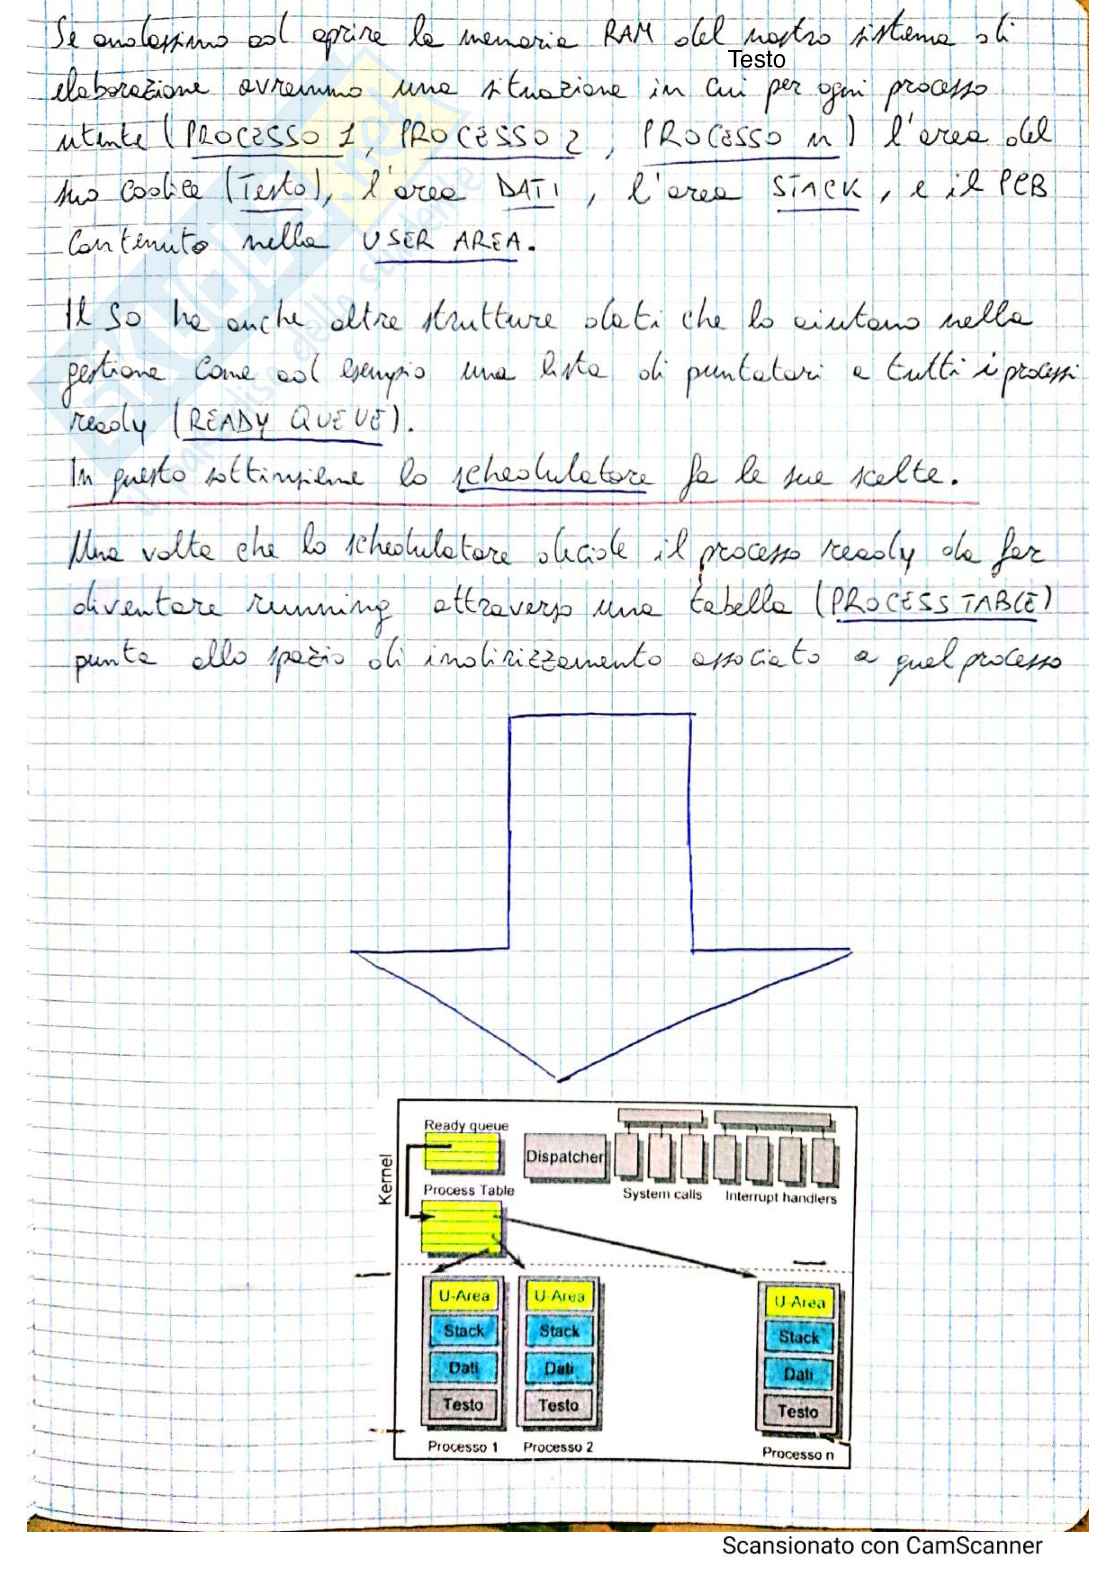 Se andassimo ad aprire la memoria RAM del nostro sistema di
Testo
elaborazione avremmo una situazione in cui per ogni processo
utente (PROCESSO 1, PROCESSO 2, PROCESSO n) l'area del
suo codice (Testo), l'area DATI, l'area STACK, e il PCB
contenuto nella USER AREA.
Il SO ha anche altre strutture dati che lo aiutano nella
gestione come ad esempio una lista di puntatori a tutti i processi
ready (READY QUEUE).
In questo sottinsieme lo schedulatore fa le sue scelte.
Una volta che lo schedulatore decide il processo ready da far
diventare running attraverso una tabella (PROCESS TABLE)
punta allo spazio di indirizzamento associato a quel processo
Kernel
Ready queue
Dispatcher
System calls
Interrupt handlers
Process Table
U-Area
Stack
Dati
Testo
Processo 1
U-Area
Stack
Dati
Testo
Processo 2
U-Area
Stack
Dati
Testo
Processo n
Scansionato con CamScanner